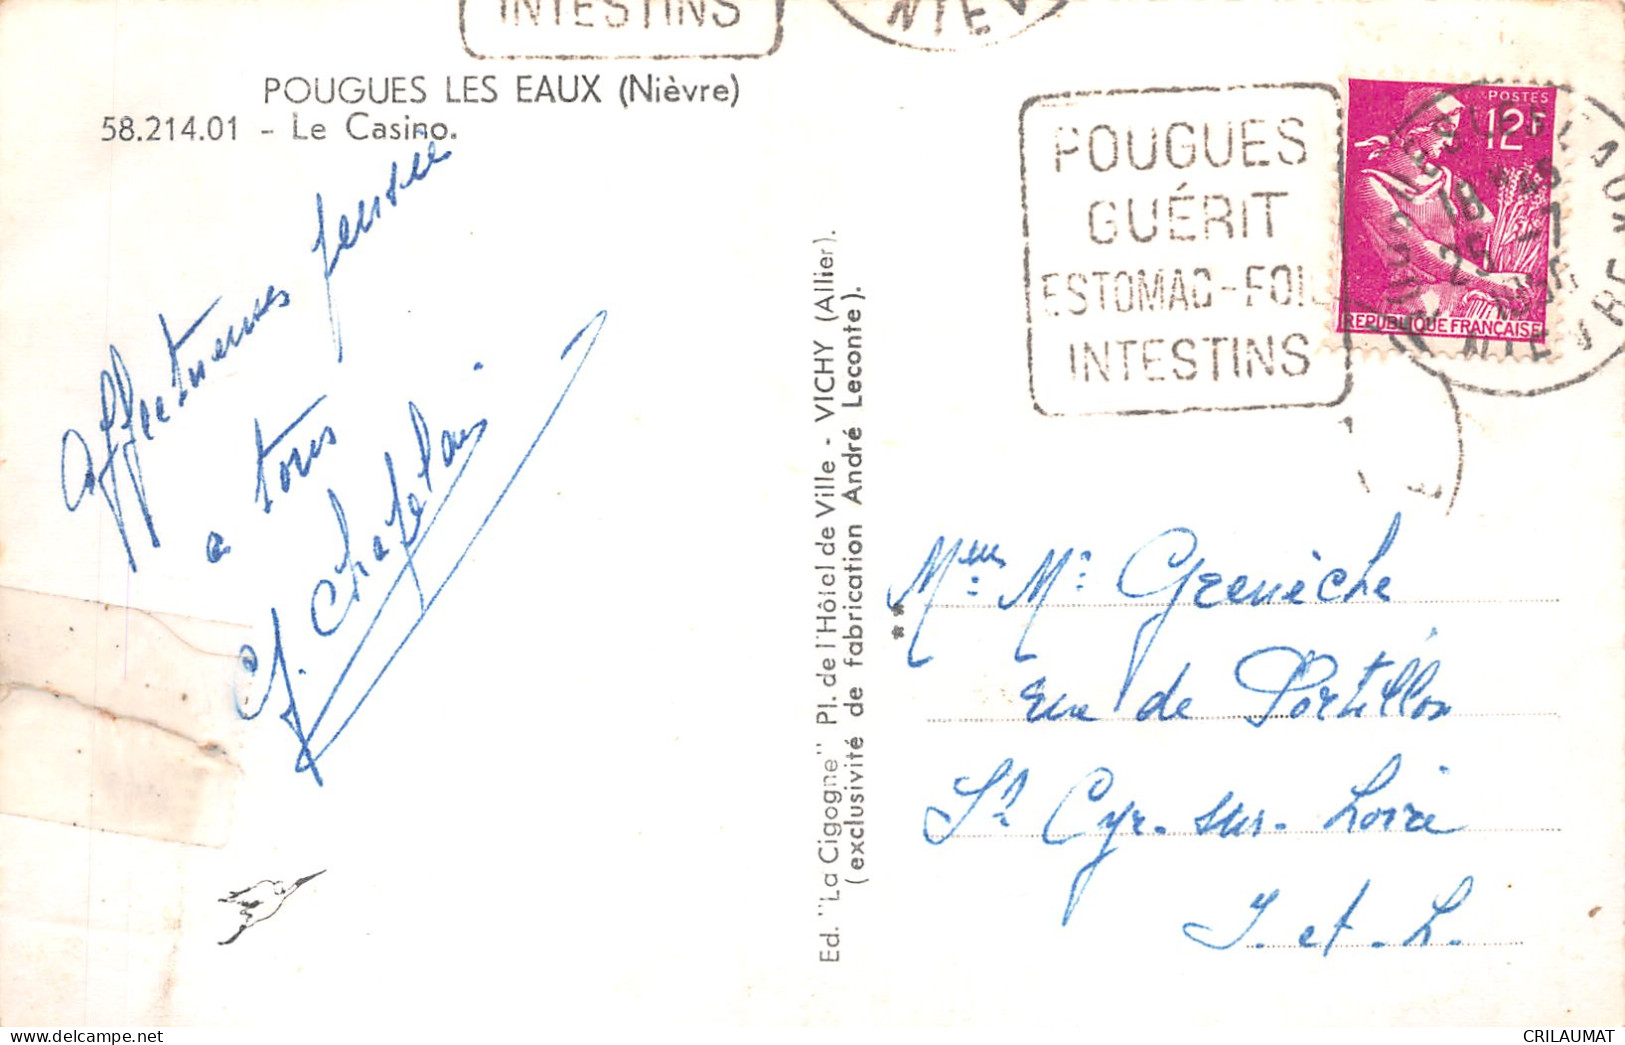 INTESTINS
NIEV
POUGUES LES EAUX (Nièvre)
58.214.01 - Le Casino.
Affectueuses pensées
a tous
J. Chapelain
Ed. "La Cigogne" Pl. de l'Hôtel de Ville - VICHY (Allier).
(exclusivité de fabrication André Leconte).
POUGUES
GUÉRIT
ESTOMAC-FOI
INTESTINS
POSTES
12F
REPUBLIQUE FRANÇAISE
POUGUES LES EAUX
18 H 45
25 -7
NIEVRE
**
Mme Mr Grenèche
rue de Portillon
St Cyr-sur-Loire
I. et. L.
CRILAUMAT